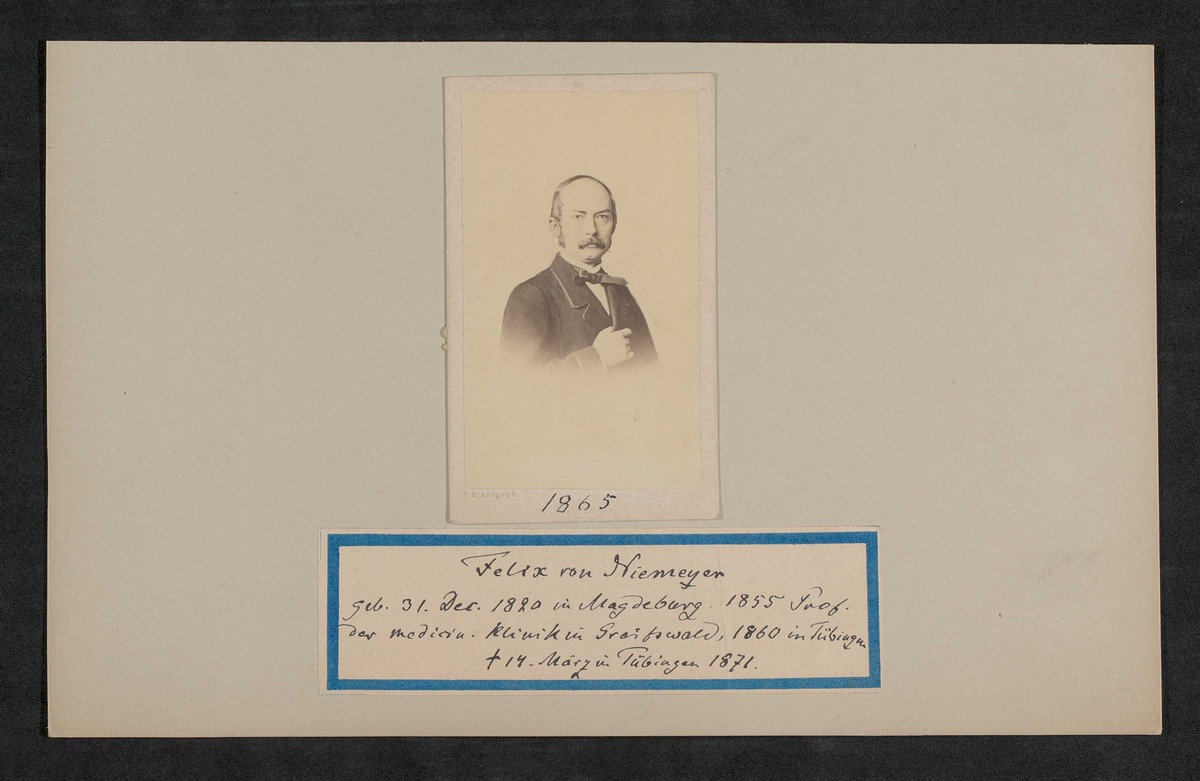 1865
Felix von Niemeyer
geb. 31. Dec. 1820 in Magdeburg. 1855 Prof.
der medicin. Klinik in Greifswald, 1860 in Tübingen
† 14. März in Tübingen 1871.